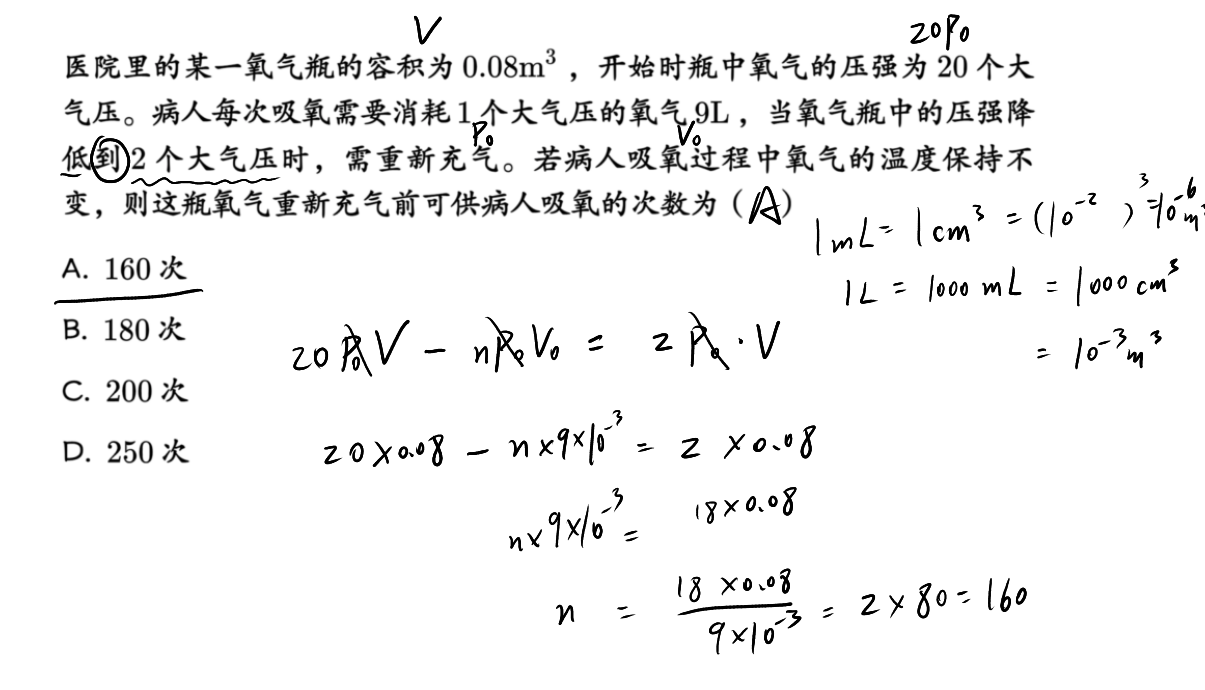 V 20P₀
医院里的某一氧气瓶的容积为 0.08m³ ，开始时瓶中氧气的压强为 20 个大
气压。病人每次吸氧需要消耗 1 个大气压的氧气 9L ，当氧气瓶中的压强降
P₀ V₀
低到 2 个大气压时，需重新充气。若病人吸氧过程中氧气的温度保持不
变，则这瓶氧气重新充气前可供病人吸氧的次数为（A）
1mL = 1cm³ = (10⁻² )³ = 10⁻⁶m³
A. 160 次
1L = 1000 mL = 1000 cm³
B. 180 次
20P₀V − nP₀V₀ = 2P₀·V
= 10⁻³m³
C. 200 次
D. 250 次
20×0.08 − n×9×10⁻³ = 2×0.08
n×9×10⁻³ = 18×0.08
n = 18×0.08 / 9×10⁻³ = 2×80 = 160